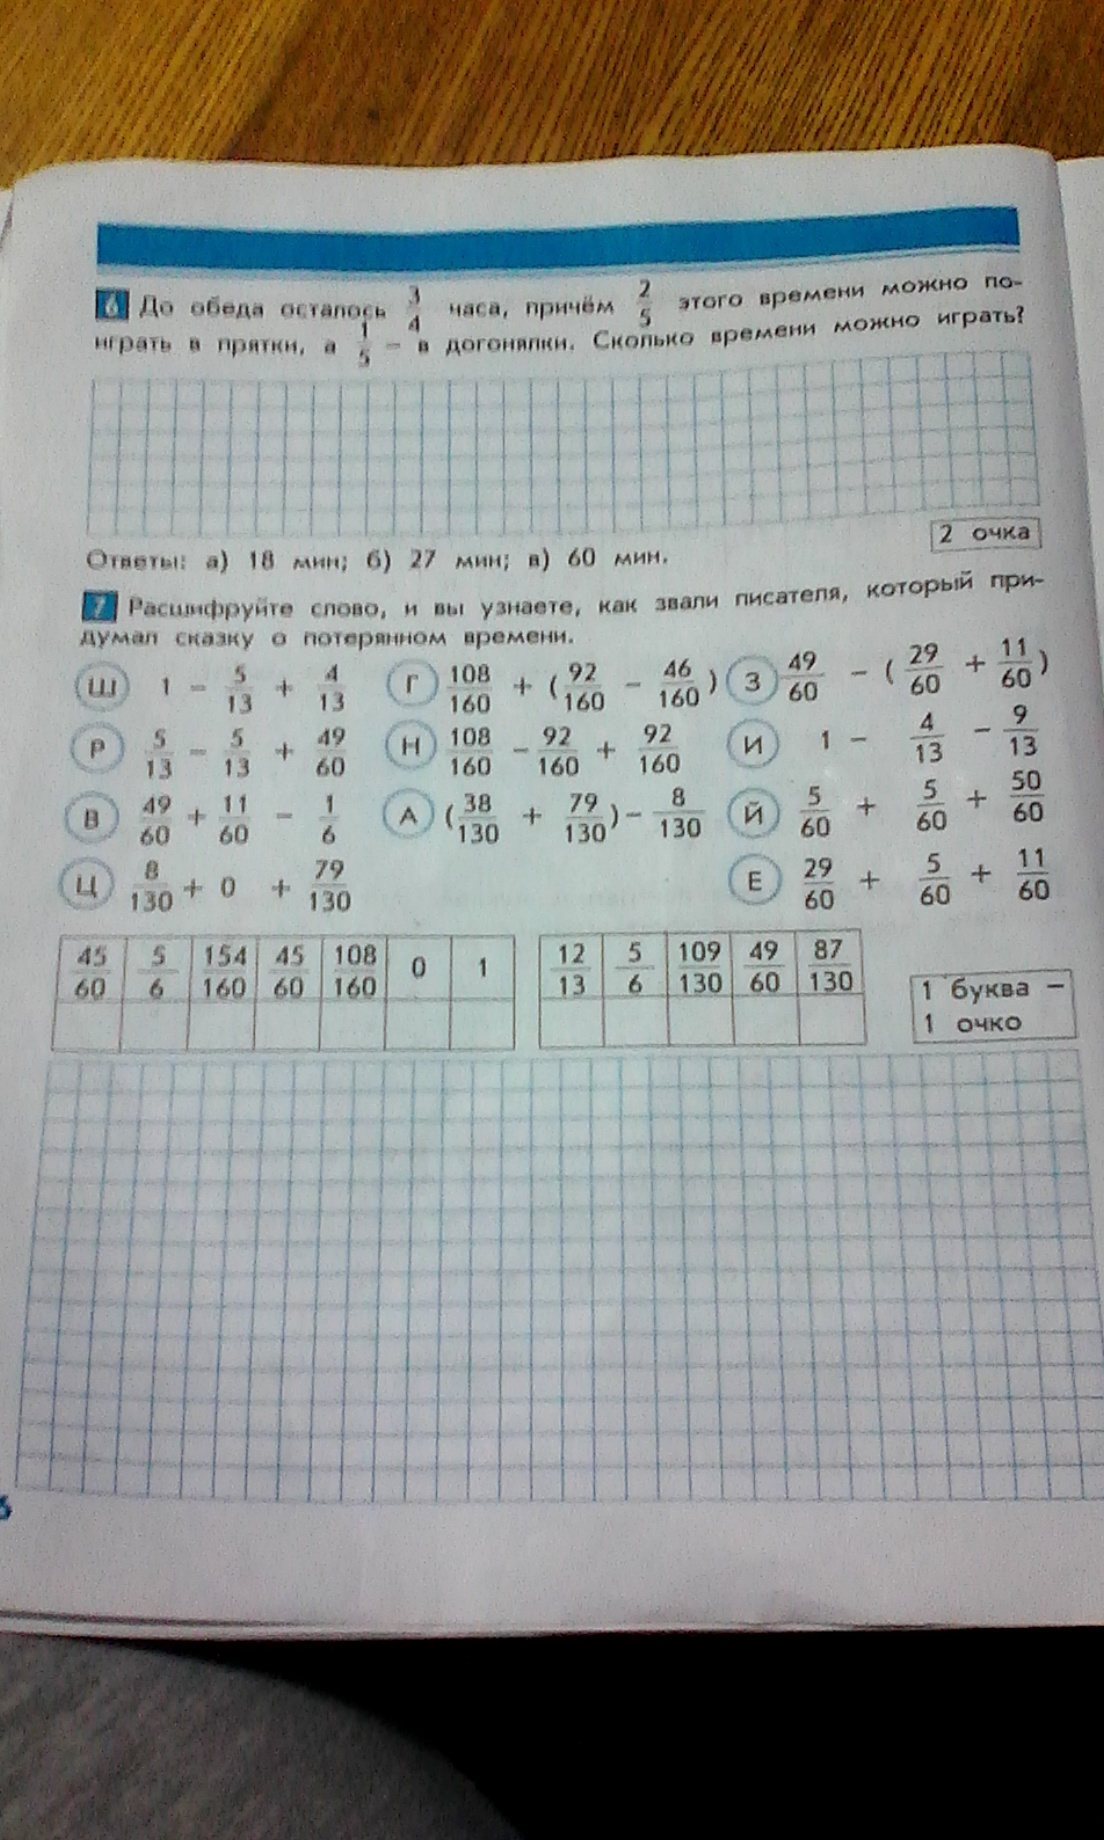 6 До обеда осталось 3/4 часа, причём 2/5 этого времени можно по-
играть в прятки, а 1/5 – в догонялки. Сколько времени можно играть?
2 очка
Ответы: а) 18 мин; б) 27 мин; в) 60 мин.
7 Расшифруйте слово, и вы узнаете, как звали писателя, который при-
думал сказку о потерянном времени.
Ш 1 – 5/13 + 4/13 Г 108/160 + (92/160 – 46/160) З 49/60 – (29/60 + 11/60)
Р 5/13 – 5/13 + 49/60 Н 108/160 – 92/160 + 92/160 И 1 – 4/13 – 9/13
В 49/60 + 11/60 – 1/6 А (38/130 + 79/130) – 8/130 Й 5/60 + 5/60 + 50/60
Ц 8/130 + 0 + 79/130 Е 29/60 + 5/60 + 11/60
45/60 5/6 154/160 45/60 108/160 0 1 12/13 5/6 109/130 49/60 87/130
1 буква –
1 очко
6